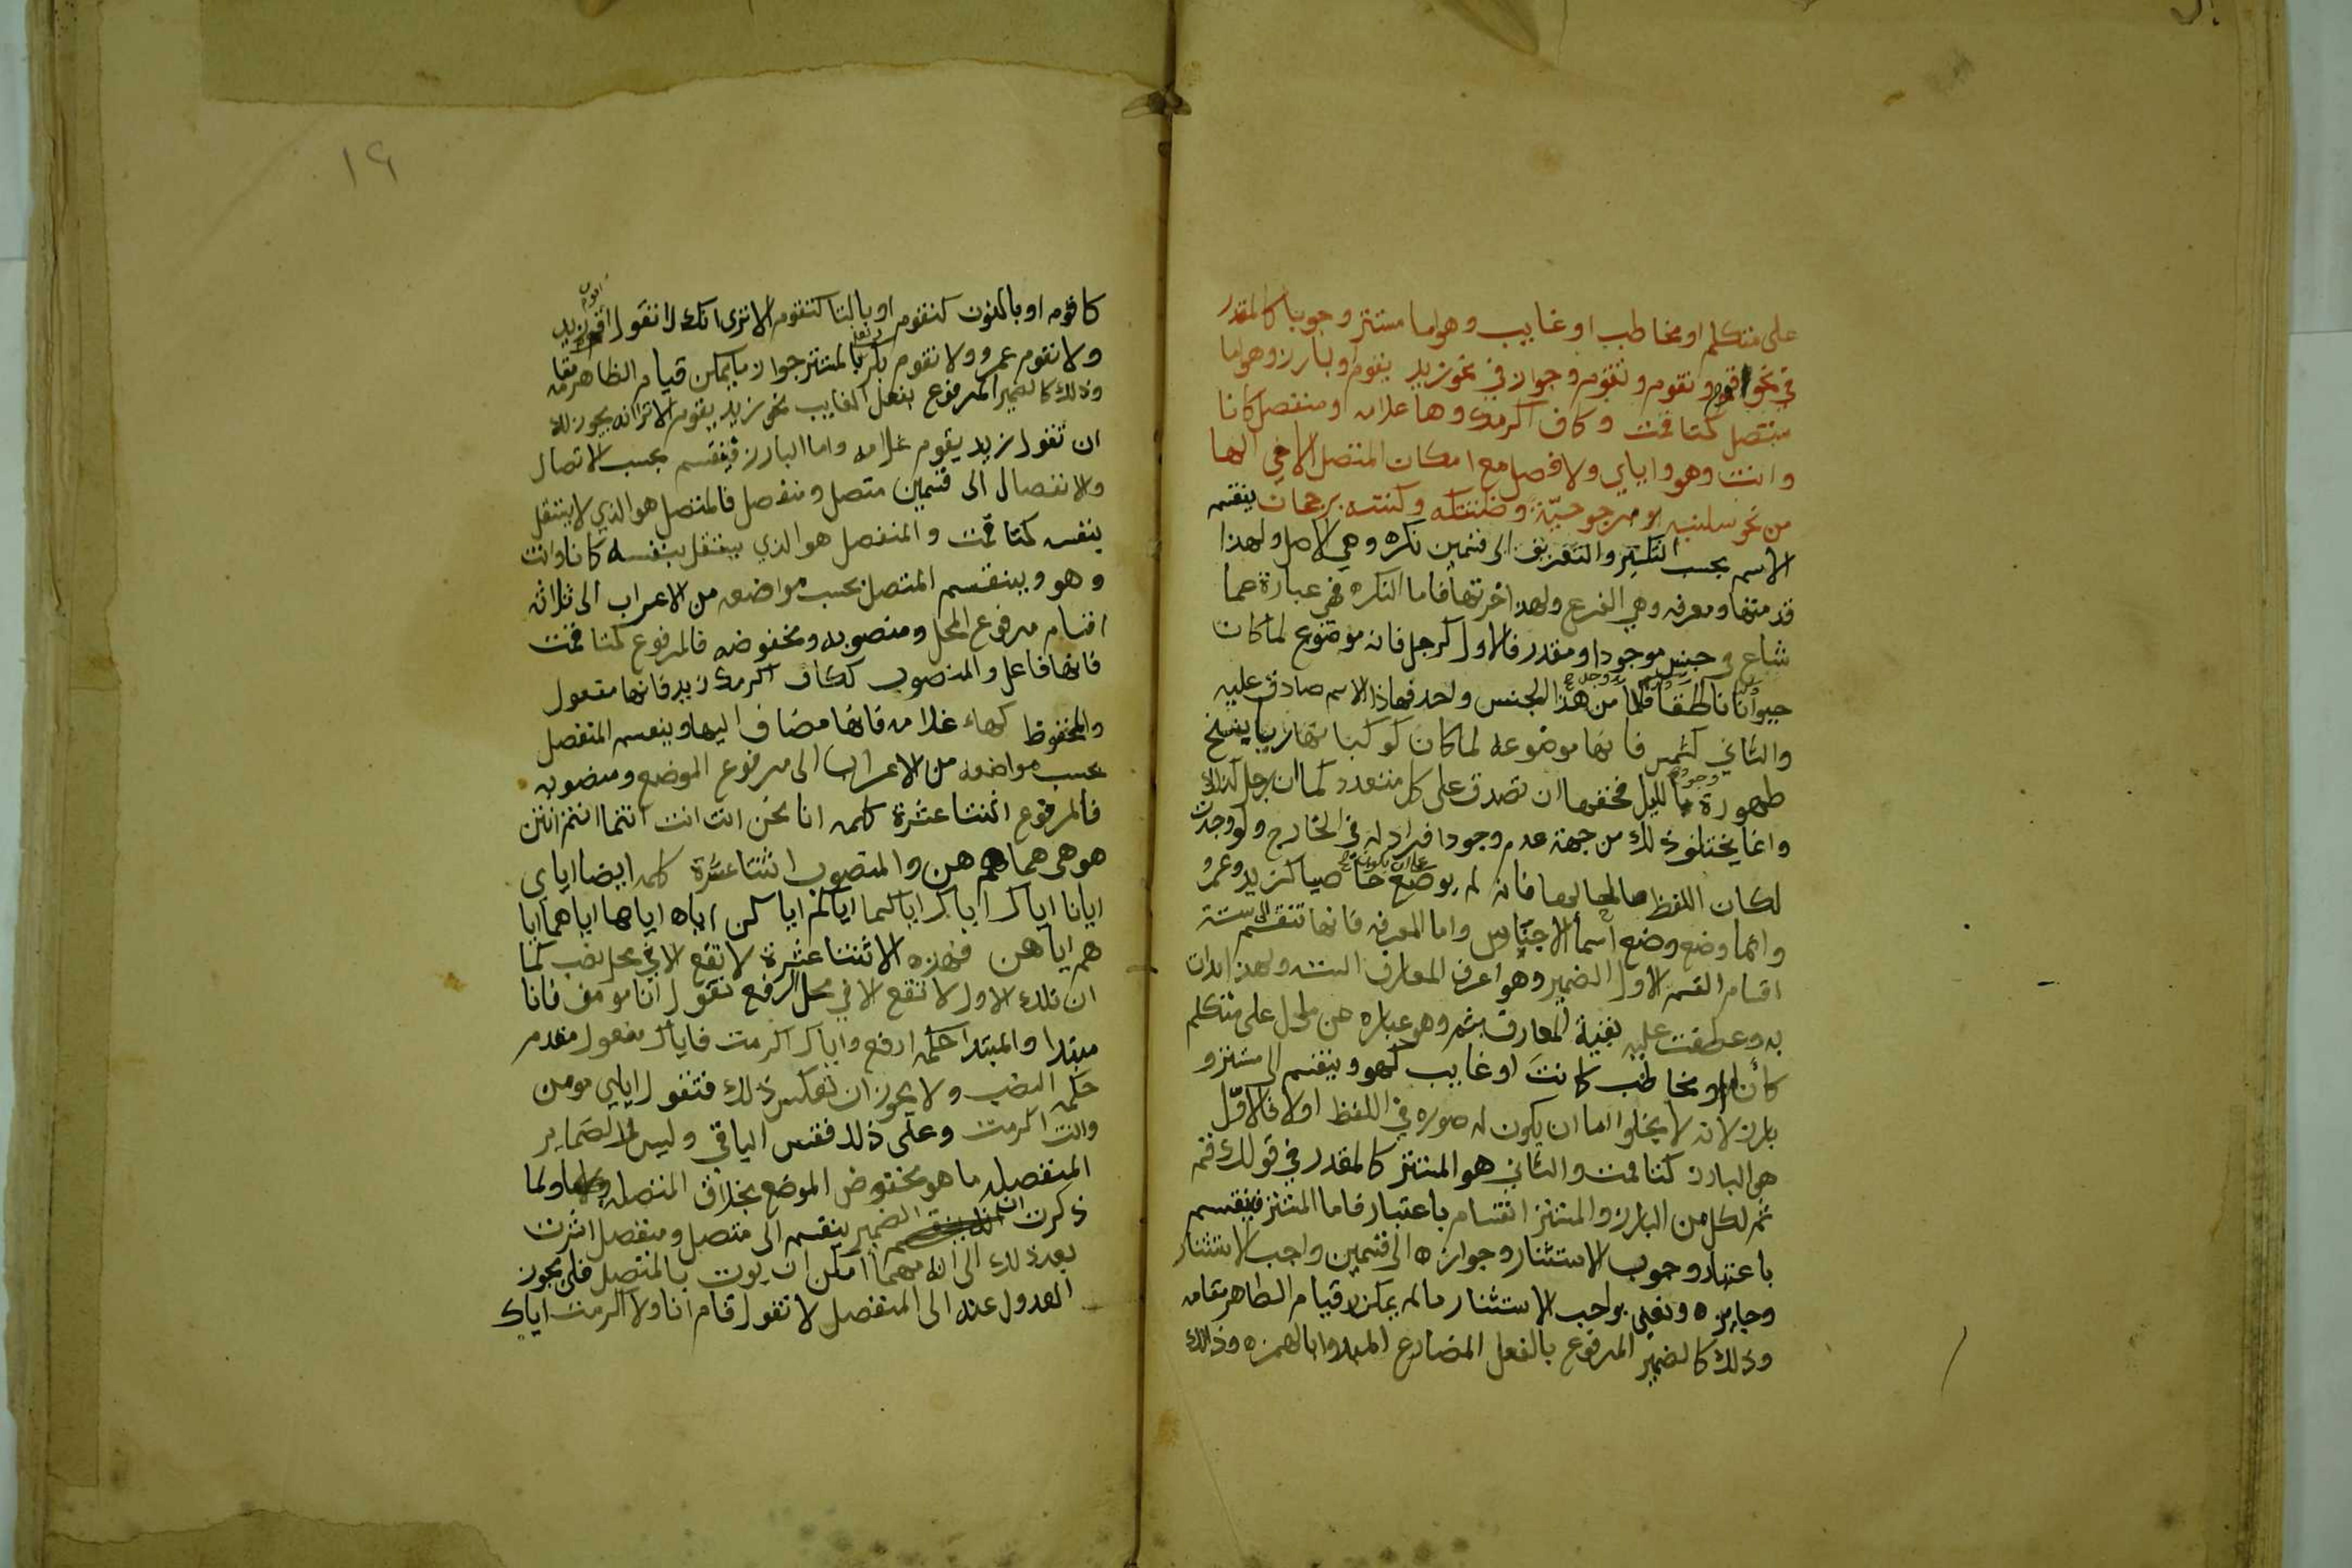 على متكلم او مخاطب او غايب وهو اما مستتر وجوبا كالمقدر
في نحو اقوم ونقوم وتقوم وجواز في نحو زيد يقوم او بارز وهو اما
متصل كتا قمت وكاف اكرمك وها غلامه او منفصل كانا
وانت وهو واياي ولا فصل مع امكان المتصل الا في الها
من نحو سلنيه بمرجوحيّة وظننتكه وكنته برجحان ينقسم
الاسم بحسب التنكير والتعريف الى قسمين نكره وهي الاصل ولهذا
قدمتها ومعرفه وهي الفرع ولهذا اخرتها فاما النكره فهي عبارة عما
شاع في جنس موجود او مقدر فالاول كرجل فانه موضوع لما كان
حيوانا ناطقا فكلما وجد من هذا الجنس واحد فهاذا الاسم صادق عليه
والثاني كشمس فانها موضوعه لما كان كوكبا نهاريا ينسخ
ظهوره وجود الليل فحقها ان تصدق على كل متعدد كما ان رجل كذلك
وانما يختلف ذلك من جهة عدم وجود افراد له في الخارج ولو وجدت
لكان اللفظ صالحا لها فانه لم يوضع على ان يكون خاصا كزيد وعمرو
وانما وضع وضع اسما الاجناس واما المعرفه فانها تنقسم الى ستة
اقسام القسم الاول الضمير وهو اعرف المعارف الستة ولهذا بدات
به وعطفت عليه بقية المعارف بثم وهو عباره عن ما دل على متكلم
كأنا او مخاطب كانت او غايب كهو وينقسم الى مستتر و
بارز لانه لا يخلوا اما ان يكون له صوره في اللفظ اولا فالاوّل
هو البارز كتا قمت والثاني هو المستتر كالمقدر في قولك قم
ثم لكل من البارز والمستتر انقسام باعتبار فاما المستتر فينقسم
باعتبار وجوب الاستتار وجوازه الى قسمين واجب الاستتار
وجايزه ونعني بواجب الاستتار ما لم يمكن قيام الظاهر مقامه
وذلك كالضمير المرفوع بالفعل المضارع المبدوا بالهمزه وذالك
١٦
كاقوم او بالنون كنقوم او بالتا كتقوم الا ترى انك لا تقول اقوم زيد
ولا نقوم عمرو ولا تقوم بكر ونعني بالمستتر جوازا ما يمكن قيام الظاهر مقامه
وذلك كالضمير المرفوع بفعل الغايب نحو زيد يقوم الا ترا انه يجوز لك
ان تقول زيد يقوم غلامه واما البارز فينقسم بحسب الاتصال
والانفصال الى قسمين متصل ومنفصل فالمتصل هو الذي لا يستقل
بنفسه كتا قمت والمنفصل هو الذي يستقل بنفسه كانا وانت
وهو وينقسم المتصل بحسب مواضعه من الاعراب الى ثلاثه
اقسام مرفوع المحل ومنصوبه ومخفوضه فالمرفوع كتا قمت
فانها فاعل والمنصوب ككاف اكرمك زيد فانها مفعول
والمخفوظ كهاء غلامه فانها مضاف اليها وينقسم المنفصل
بحسب مواضعه من الاعراب الى مرفوع الموضع ومنصوبه
فالمرفوع اثنتا عشرة كلمه انا نحن انت انت انتما انتم انتن
هو هي هما هم هن والمنصوب اثنتا عشرة كلمه ايضا اياي
ايانا اياك اياك اياكما اياكم اياكن اياه اياها اياهما ايا
هم اياهن فهذه الاثنتا عشرة لا تقع الا في محل نصب كما
ان تلك الاول لا تقع الا في محل الرفع تقول انا مومن فانا
مبتدا والمبتدا حكمه الرفع واياك اكرمت فاياك مفعول مقدم
حكمه النصب ولا يجوز ان تعكس ذلك فتقول اياي مومن
وانت اكرمت وعلى ذلك فقس الباقي وليس في الضماير
المنفصله ما هو مخفوض الموضع بخلاف المتصله ولما
ذكرت ان الضمير ينقسم الى متصل ومنفصل اشرت
بعد ذلك الى انه مهما امكن ان يوت بالمتصل فلا يجوز
العدول عنه الى المنفصل لا تقول قام انا ولا اكرمت اياك